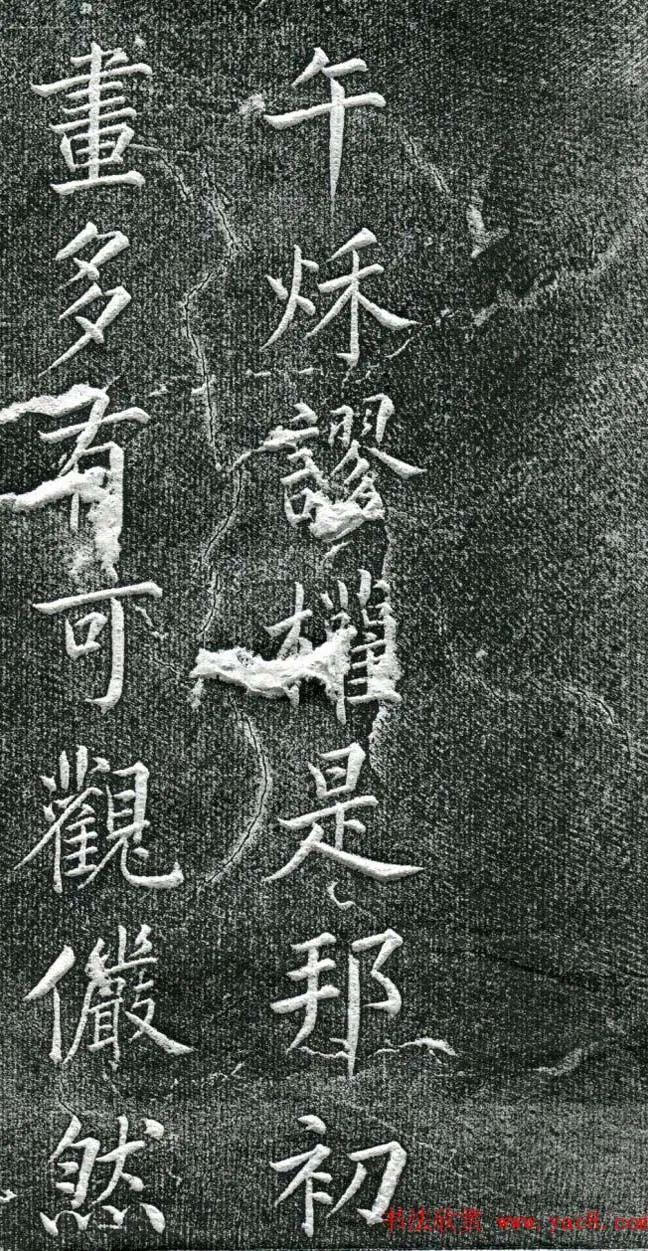 午秌謬權是邦初
畫多有可觀儼然
书法欣赏 www.yac8.com